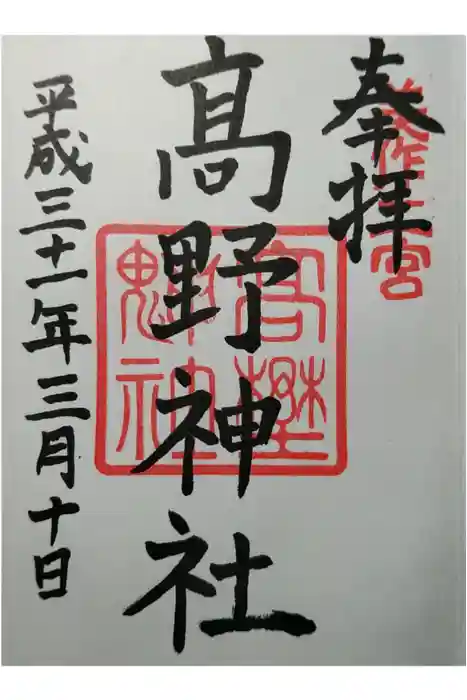 奉拝
美作二宮
髙野神社
平成三十一年三月十日